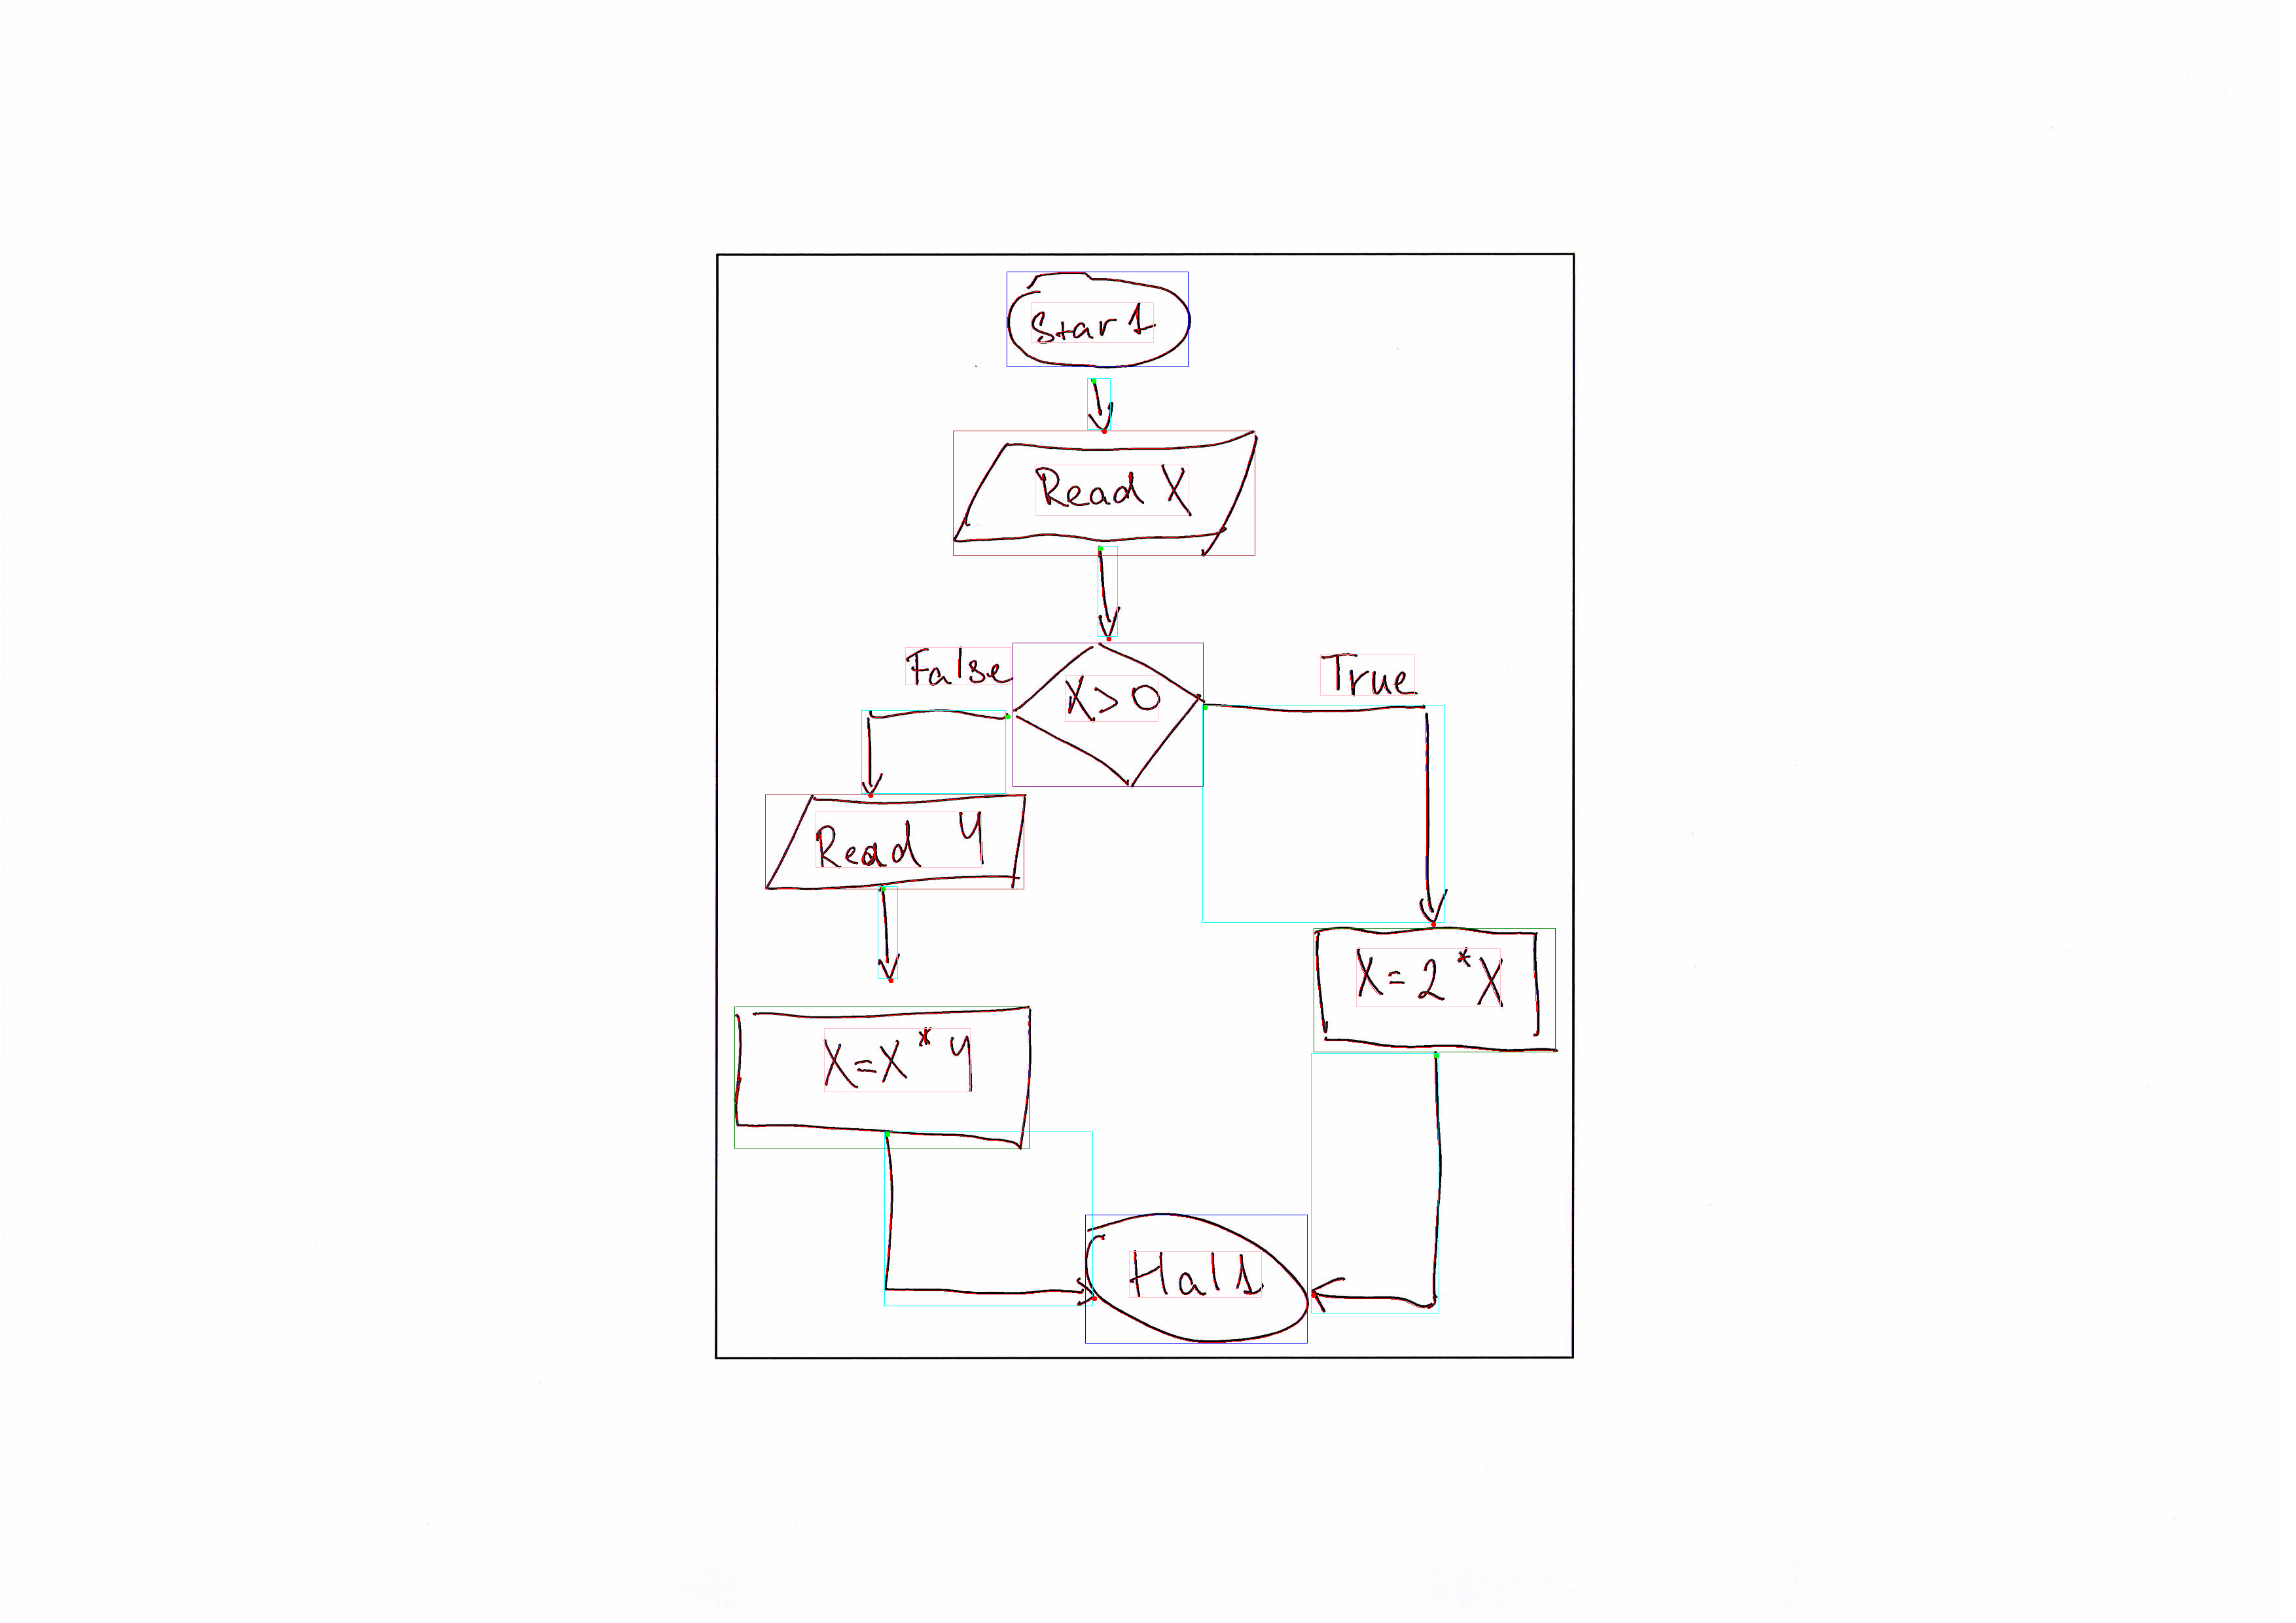 Start
Read X
False
True
X>0
Read Y
X=2*X
X=X*Y
Halt